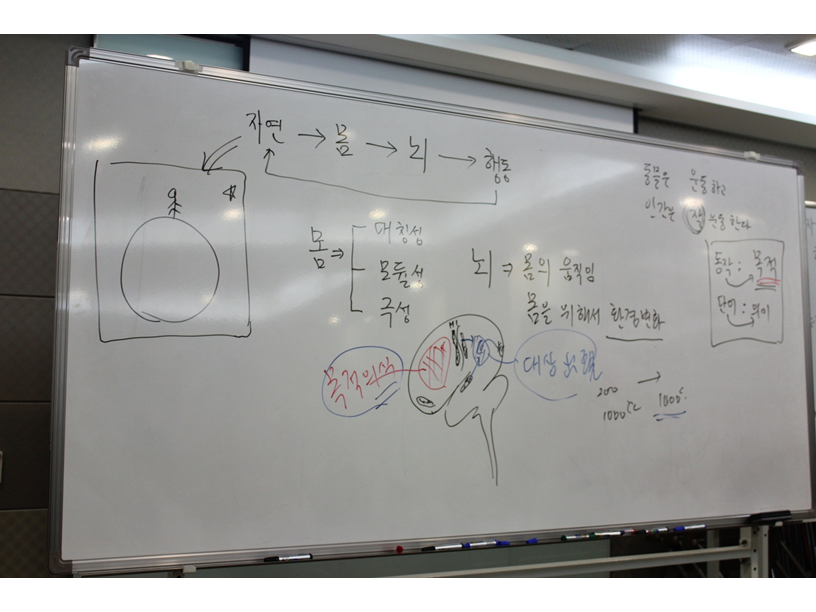 자연 → 몸 → 뇌 → 행동
동물은 운동하고
인간은 잘 운동한다
몸 ⇒ 대칭성
모듈성
극성
뇌 ⇒ 몸의 움직임
몸을 위해서 환경변화
동작 : 목적
단어 : 의미
목적의식
대상
1000cc